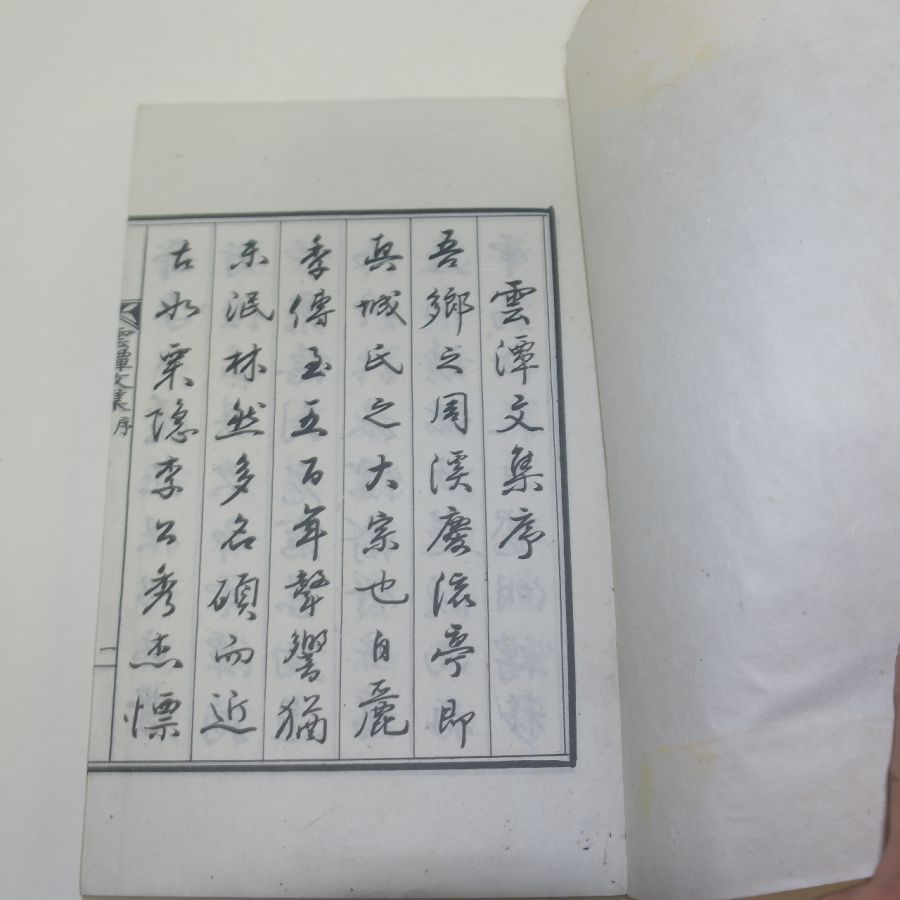 雲潭文集序
吾鄉之周溪慶流亭即
真城氏之大宗也自麗
季傳至五百年聲響猶
未泯林然多名碩而近
古如栗隱李公秀杰慓
雲潭文集 序 一